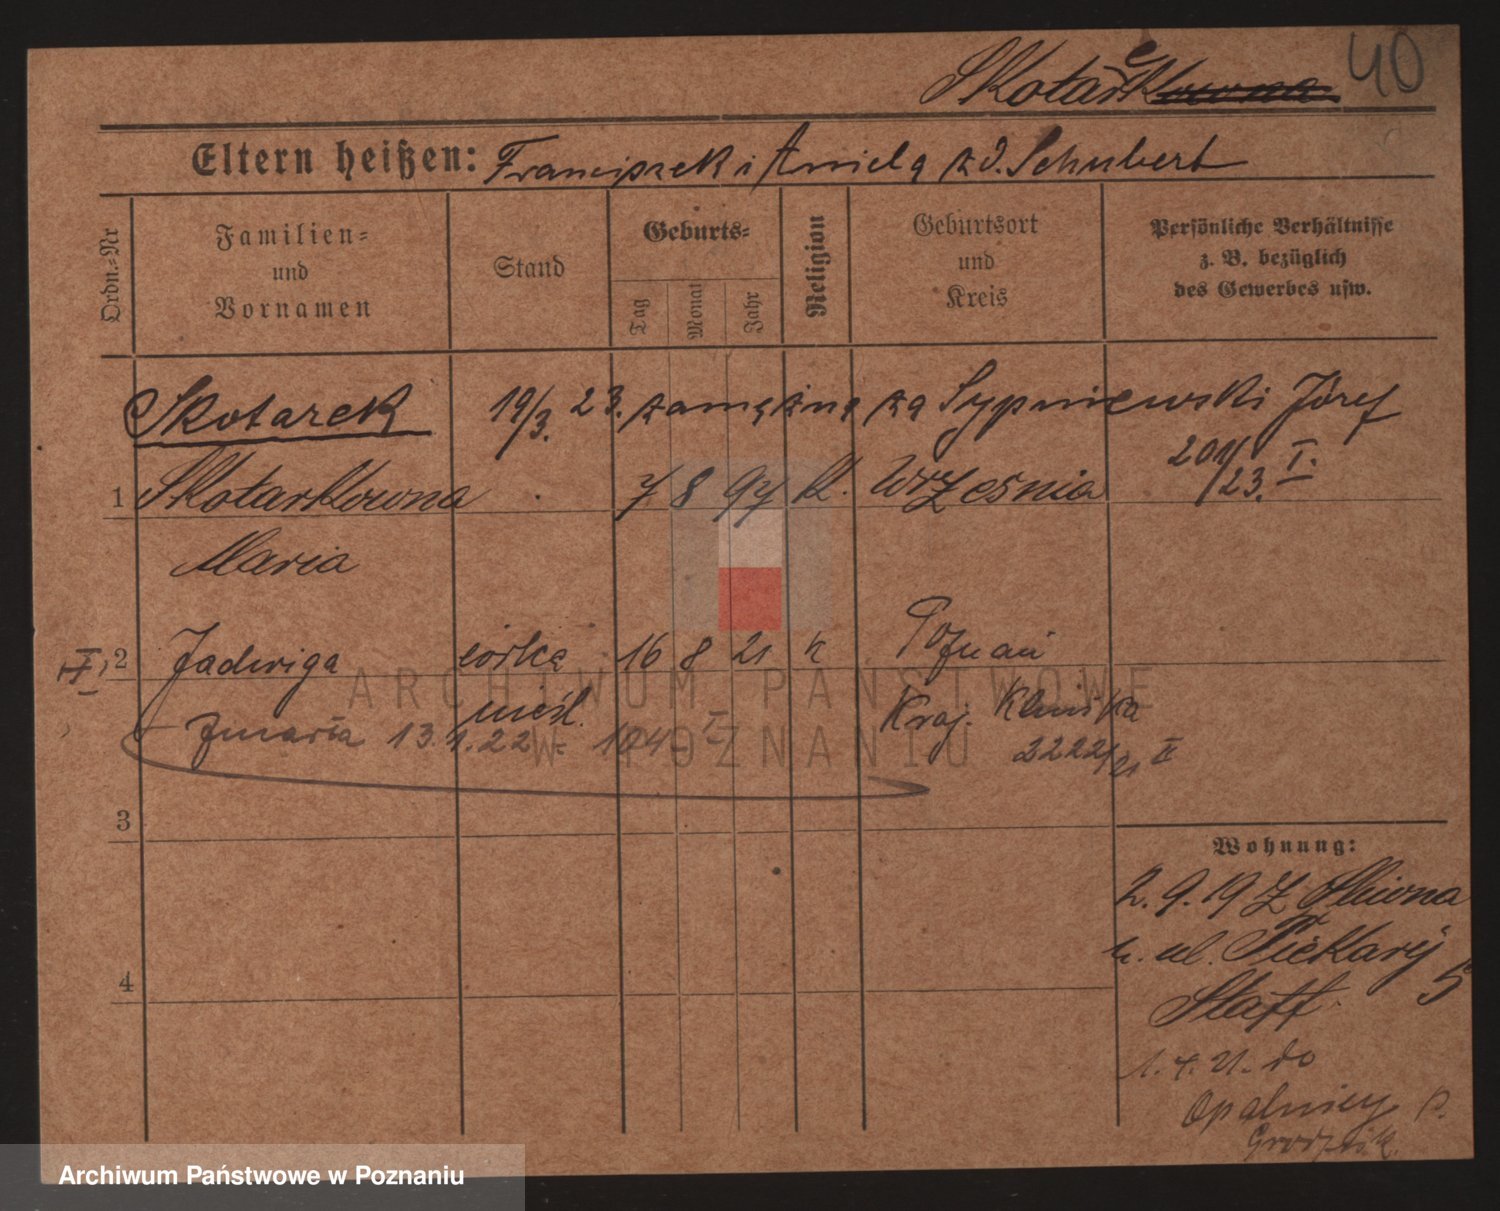 Skotarek 40
Eltern heißen: Franciszek i Aniela z d. Schubert
Ordn.-Nr
Familien-
und
Vornamen
Stand
Geburts-
Tag
Monat
Jahr
Religion
Geburtsort
und
Kreis
Persönliche Verhältnisse
z. B. bezüglich
des Gewerbes usw.
Skotarek 19/3. 23. zamężna za Sypniewski Józef
201/23. I.
1 Skotarkowna 7 8 97 k. Września
Maria
I 2 Jadwiga córka 16 8 21 k Poznań
nieśl. Kraj. Klinika
zmarła 13.1.22 104 I 2222/21 II
3
4
Wohnung:
2. 9. 19 Z
u. ul. Piekary 5
1. 4. 21. do
Opalenicy p.
Grodzisk.
ARCHIWUM PAŃSTWOWE
W POZNANIU
Archiwum Państwowe w Poznaniu